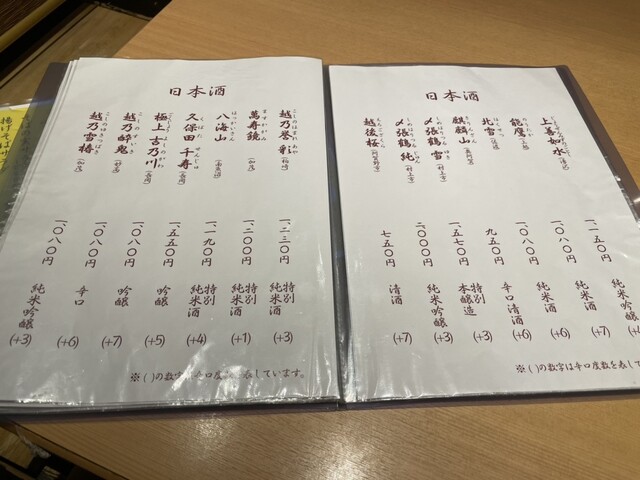 日本酒
上善如水 一、一五〇円 純米
能鷹 一、〇八〇円 純米酒 (+7)
北雪 一、〇八〇円 純米酒 (+6)
麒麟山 九五〇円 辛口清酒 (+6)
〆張鶴 雪 (村上市) 一、五七〇円 特別本醸造 (+3)
〆張鶴 純 (村上市) 二〇〇〇円 純米吟醸 (+3)
越後桜 (阿賀野市) 七五〇円 清酒 (+7)
※( )の数字は辛口度数を表して
日本酒
越乃誉 彩 (柏崎) 一、二三〇円 特別純米酒 (+3)
萬寿鏡 (加茂) 一、二〇〇円 特別純米酒 (+1)
八海山 (南魚沼) 一、一九〇円 特別純米酒 (+4)
久保田 千寿 (長岡) 一、五五〇円 吟醸 (+5)
極上吉乃川 (長岡) 一、〇八〇円 吟醸 (+7)
越乃酔鬼 一、〇八〇円 辛口 (+6)
越乃雪椿 (加茂) 一、〇八〇円 純米吟醸 (+3)
※( )の数字は辛口度数を表しています。